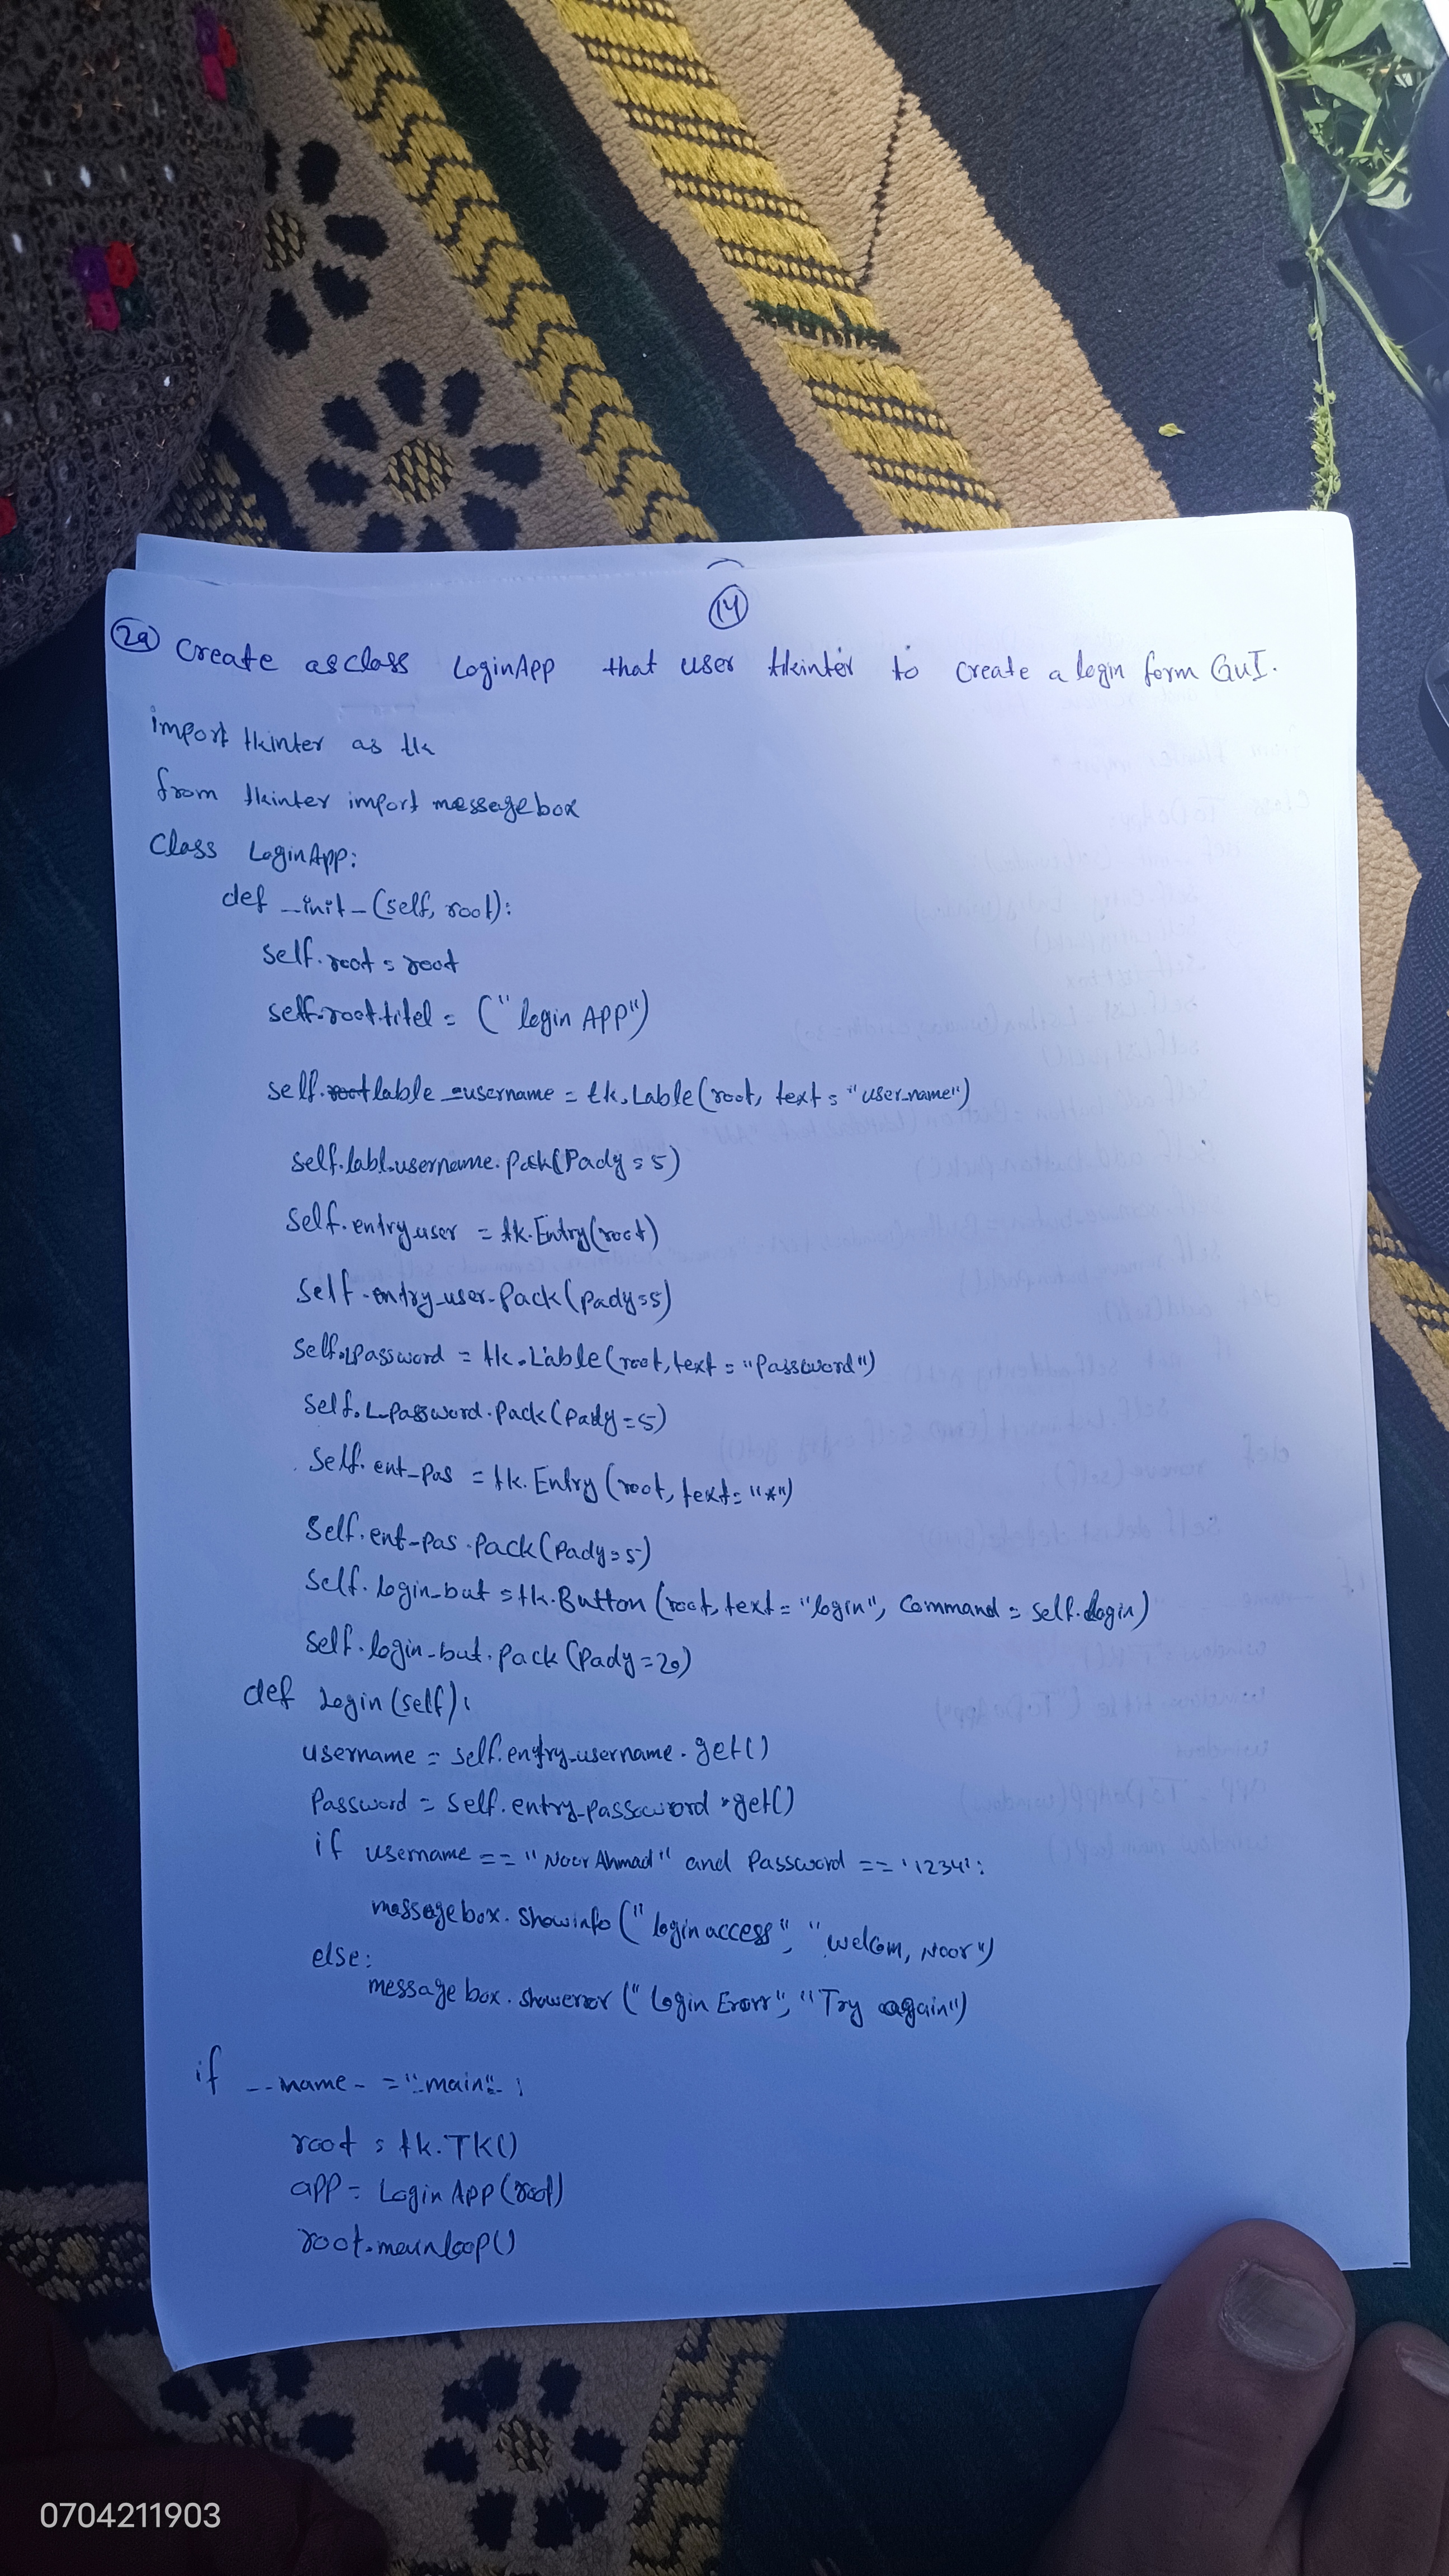 14
2a Create as class LoginApp that user tkinter to create a login form GUI.
import tkinter as tk
from tkinter import messagebox
Class LoginApp:
def _init_(self, root):
self.root = root
self.root.titel = ("login APP")
self.lable_username = tk.Lable(root, text = "user_name")
self.labl.username.pack(Pady=5)
self.entry.user = tk.Entry(root)
self.entry_user.Pack(pady=5)
self.Lpassword = tk.Lable(root, text = "Password")
self.L_password.pack(pady=5)
self.ent_pas = tk.Entry(root, text = "*")
self.ent_pas.pack(Pady=5)
self.login_but = tk.Button(root, text = "login", Command = self.login)
self.login_but.pack(Pady=20)
def Login(self):
username = self.entry_username.get()
Password = self.entry_password.get()
if username == "Noor Ahmad" and Password == '1234':
messagebox.showinfo("login access", "welcom, Noor")
else:
messagebox.showerror("Login Erorr", "Try again")
if __name_ = "_main"_:
root = tk.TK()
app = LoginApp(root)
root.mainloop()
0704211903